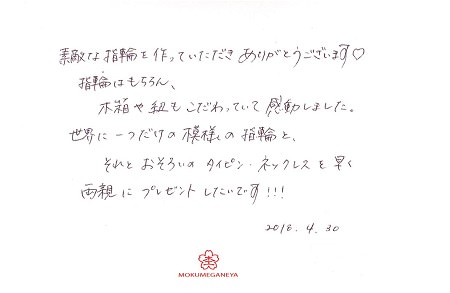 素敵な指輪を作っていただきありがとうございます♡
指輪はもちろん、
木箱や紐もこだわっていて感動しました。
世界に一つだけの模様の指輪と、
それとおそろいのタイピン・ネックレスを早く
両親にプレゼントしたいです!!!
2016.4.30
MOKUMEGANEYA